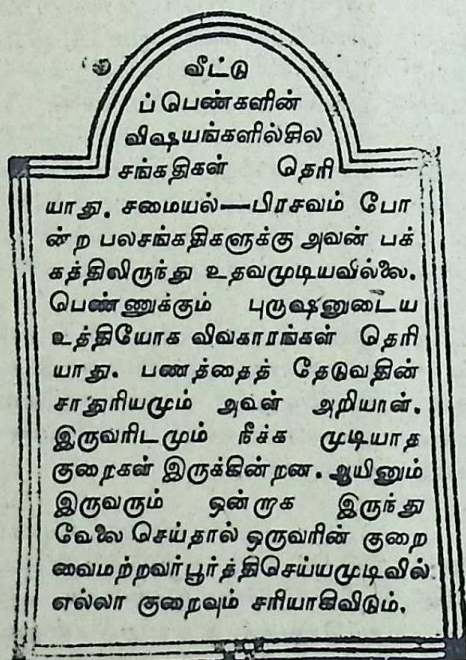 வீட்டு
ப் பெண்களின்
விஷயங்களில்சில
சங்கதிகள் தெரி
யாது. சமையல்—பிரசவம் போ
ன்ற பலசங்கதிகளுக்கு அவன் பக்
கத்திலிருந்து உதவமுடியவில்லை.
பெண்ணுக்கும் புருஷனுடைய
உத்தியோக விவகாரங்கள் தெரி
யாது. பணத்தைத் தேடுவதின்
சாதுரியமும் அவள் அறியாள்.
இருவரிடமும் நீக்க முடியாத
குறைகள் இருக்கின்றன. ஆயினும்
இருவரும் ஒன்றாக இருந்து
வேலை செய்தால் ஒருவரின் குறை
வைமற்றவர்பூர்த்திசெய்யமுடிவில்
எல்லா குறைவும் சரியாகிவிடும்.